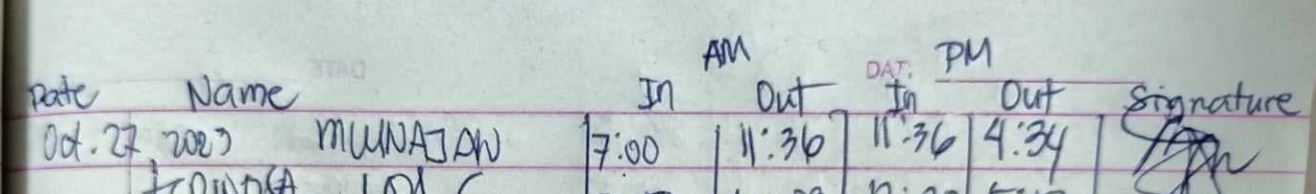 AM PM
DATE
Date Name In Out In Out Signature
Oct. 27, 2023 7:00 11:36 11:36 4:34